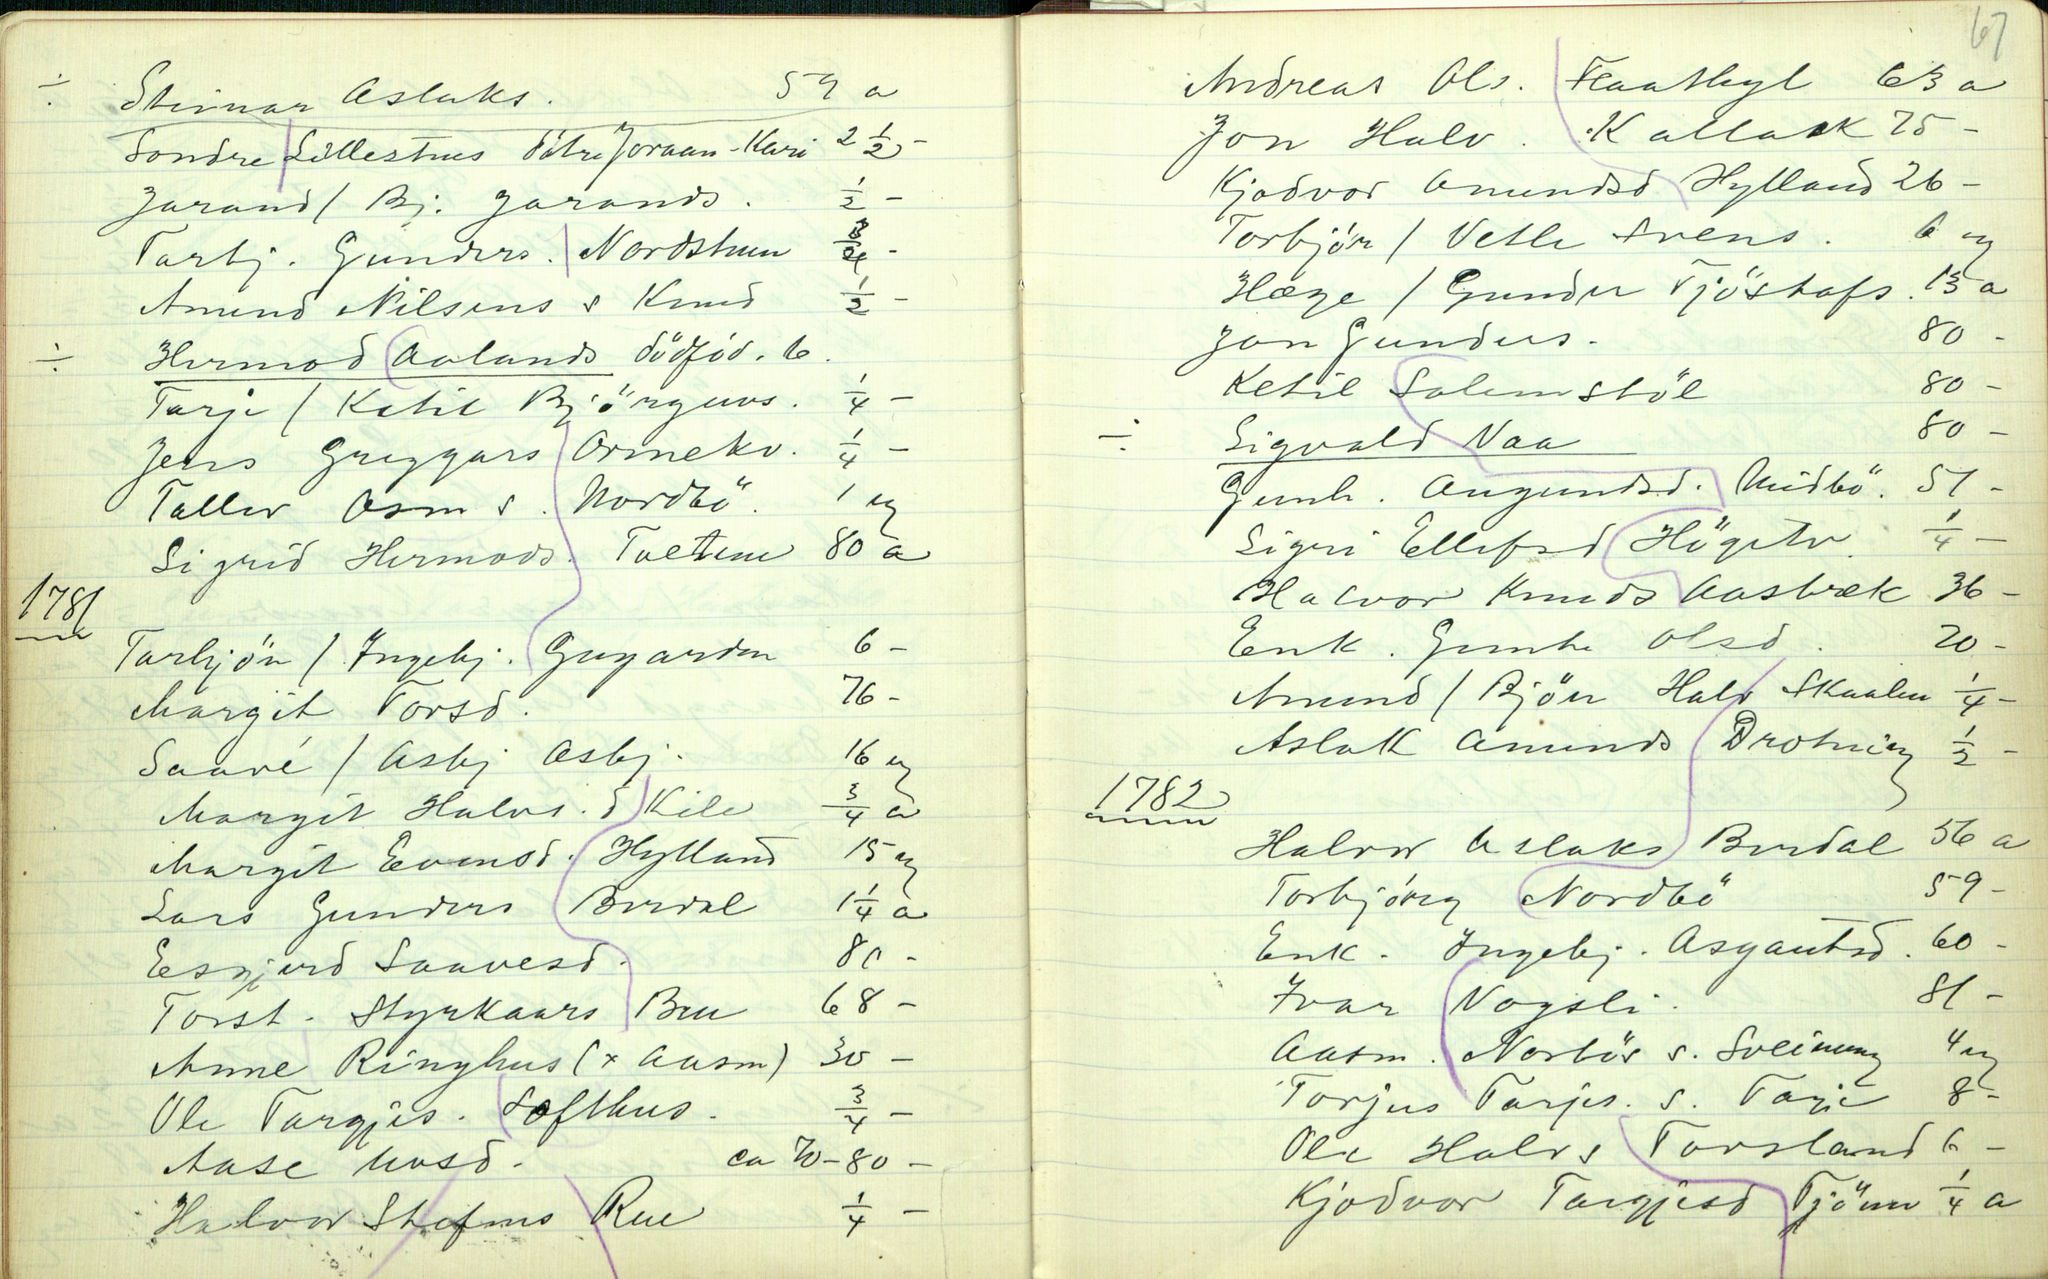 ÷ Steinar Aslaks. 59 a
Sondre Lillesthus dötre Joraan - Kari 2 1/2 -
Jarand / Bj. Jarands. 1/2 -
Tarbj. Gunders. Nordstun -
Amund Nilsens s Knud 1/2 -
÷ Hermod Aalands dödföd. b.
Tarje / Ketil Björguvs. 1/4 -
Jens Greggars Ormekv. 1/4 -
Tallev Asm s. Nordbö. 1 ug
Sigrid Hermods. Tveitun 80 a
1781
Tarbjön / Ingebj. Gugarden 6 -
Margit Torsd. 76 -
Saavé / Asbj Asbj. 16 ug
Margit Halvs. d Kile 3/4 a
Margit Evensd. Hylland 15 ug
Lars Gunders Berdal 1 1/4 a
Esgjerd Saavesd. 80 -
Torst. Styrkaars Bru 68 -
Anne Ringhus (x Aasm) 30 -
Ole Targjes. Lofthus. 3/4 -
Aase Uvsd. ca 70 - 80 -
Halvor Stefens Rue 1/4 -
67
Andreas Ols. Flaathyl 63 a
Jon Halv. Kallaak 75 -
Kjodvor Amundsd Hylland 26 -
Torbjör / Vetle Svens. 6 ug
Hæge / Gunder Tjöstafs. 13 a
Jon Gunders. 80 -
Ketil Solemstöl 80 -
÷ Sigvald Naa 80 -
Gunh. Augundsd. Midbö. 51 -
Sigri Ellefsd Högetv. 1/4 -
Halvor Knuds Aasbræk 36 -
Enk. Gunhi Olsd. 70 -
Amund / Björn Halv Skaalen 1/4 -
Aslak Amunds Drotning 1/2 -
1782
Halvor Aslaks Berdal 56 a
Torbjörg Nordbö 59 -
Enk. Ingebj. Asgautsd. 60 -
Ivar Vogsli. 81 -
Aasm. Norbös s. Sveinung 4 ug
Torjus Tarjes. s. Tarje 8 -
Ole Halvs Torsland 6 -
Kjodvor Targjesd Tjönn 1/4 a